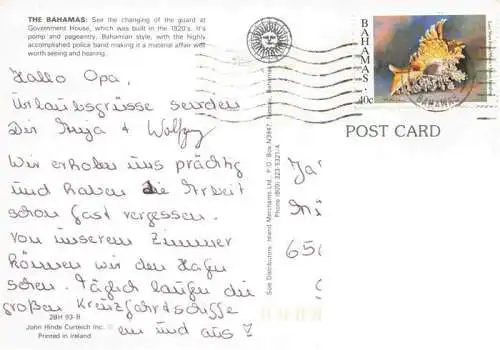 THE BAHAMAS: See the changing of the guard at
Government House, which was built in the 1920's. It's
pomp and pageantry, Bahamian style, with the highly
accomplished police band making it a material affair well
worth seeing and hearing.
Hallo Opa,
Urlaubsgrüsse senden
Dir Inga + Wolfgang
Wir erholen uns prächtig
und haben die Arbeit
schon fast vergessen.
Von unserem Zimmer
können wir den Hafen
sehen. Täglich laufen die
großen Kreuzfahrtschiffe
ein und aus
28H 93-B
John Hinde Curteich Inc. ©
Printed in Ireland
Sole Distributors: Island Merchants Ltd., P.O. Box N3947 Nassau, Bahamas
Phone (809) 323-5321/4
BAHAMAS
40c
BAHAMAS
POST CARD
Ja
65